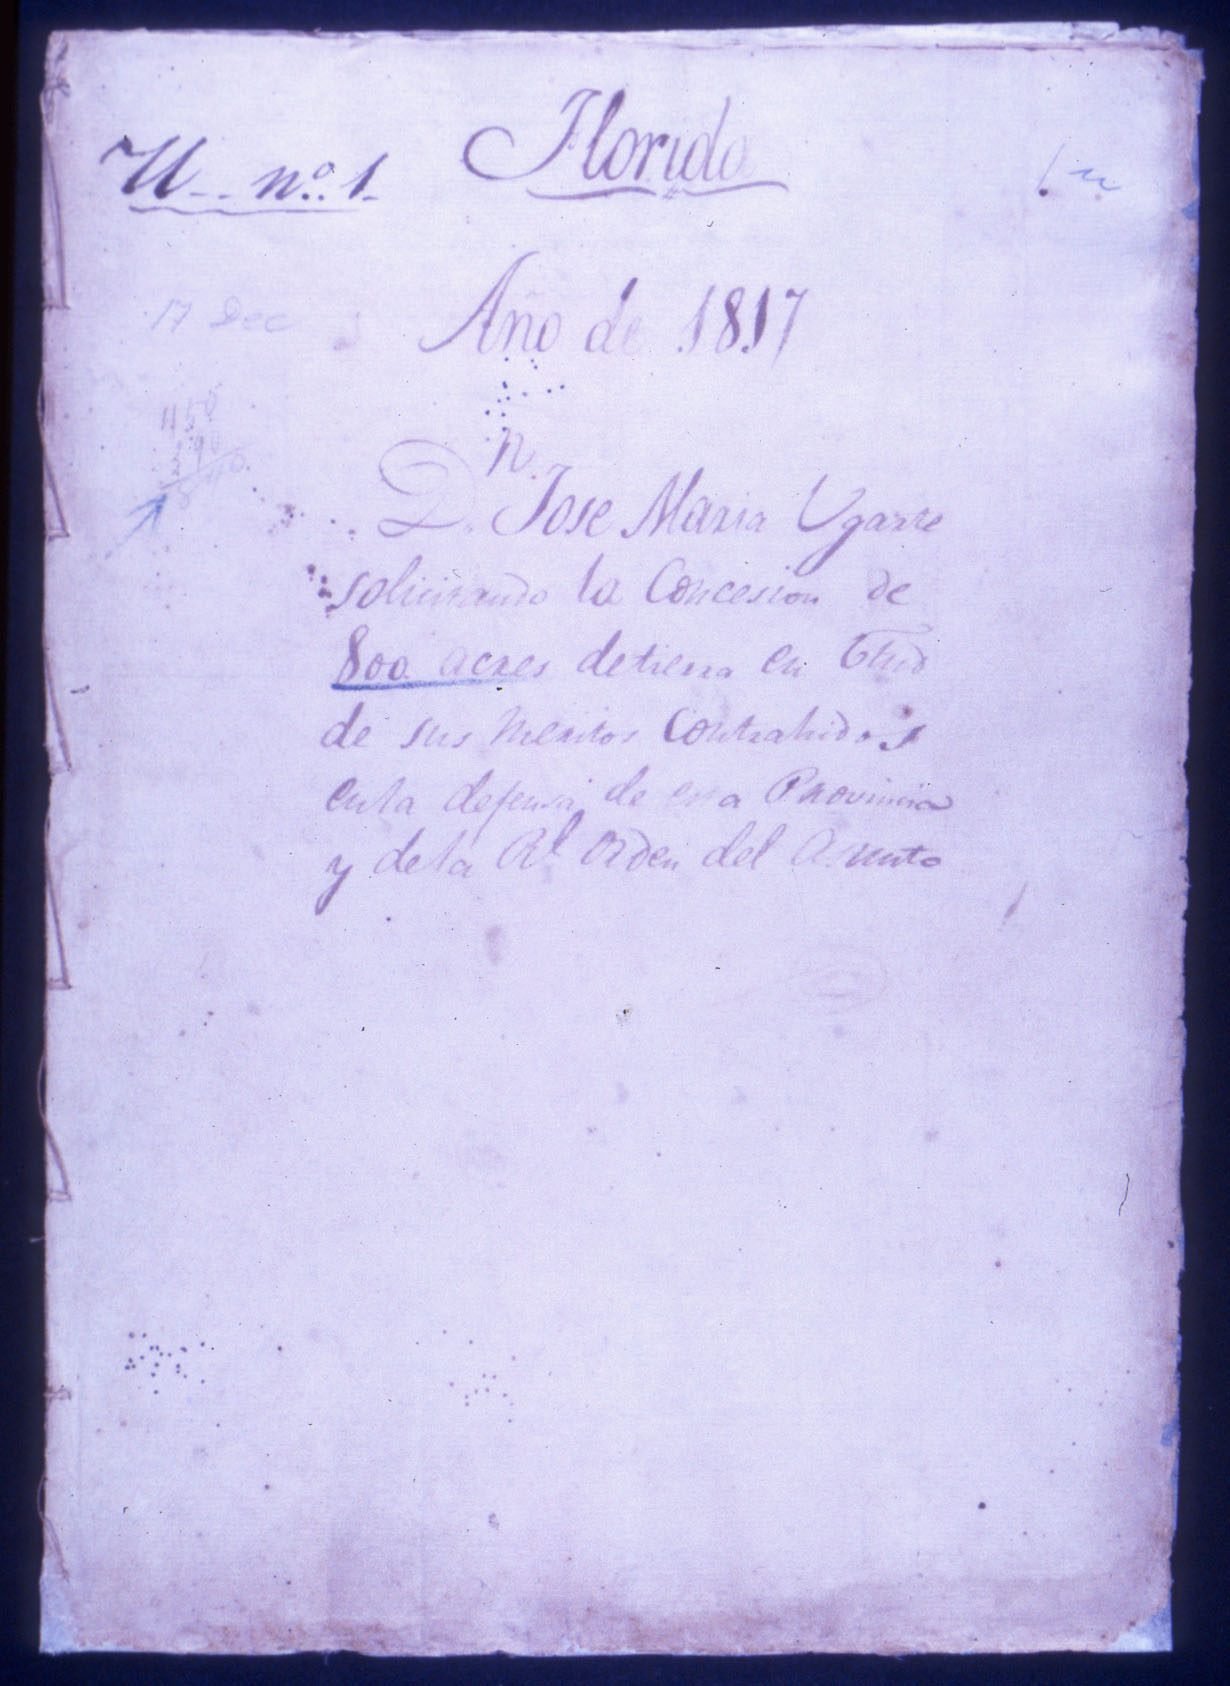 Florida
U. nº. 1.
Año de 1817
17 Dec
450
390
840
Dn. Jose Maria Ugarte
solicitando la Concesion de
800 acres de tierra en Vtud
de sus meritos Contrahidos
en la defensa de esta Provincia
y de la Rl. Orden del Asunto